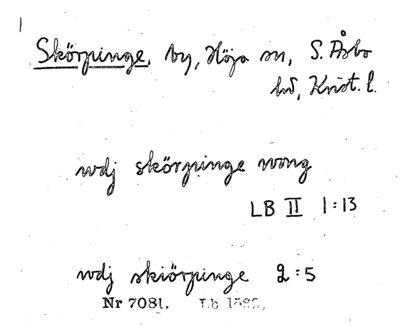 Skörpinge, by, Höja sn, S. Åsbo
hd, Krist. l.
wdj skörpinge wong
LB II 1:13
wdj skiörpinge 2:5
Nr 7081. Lb